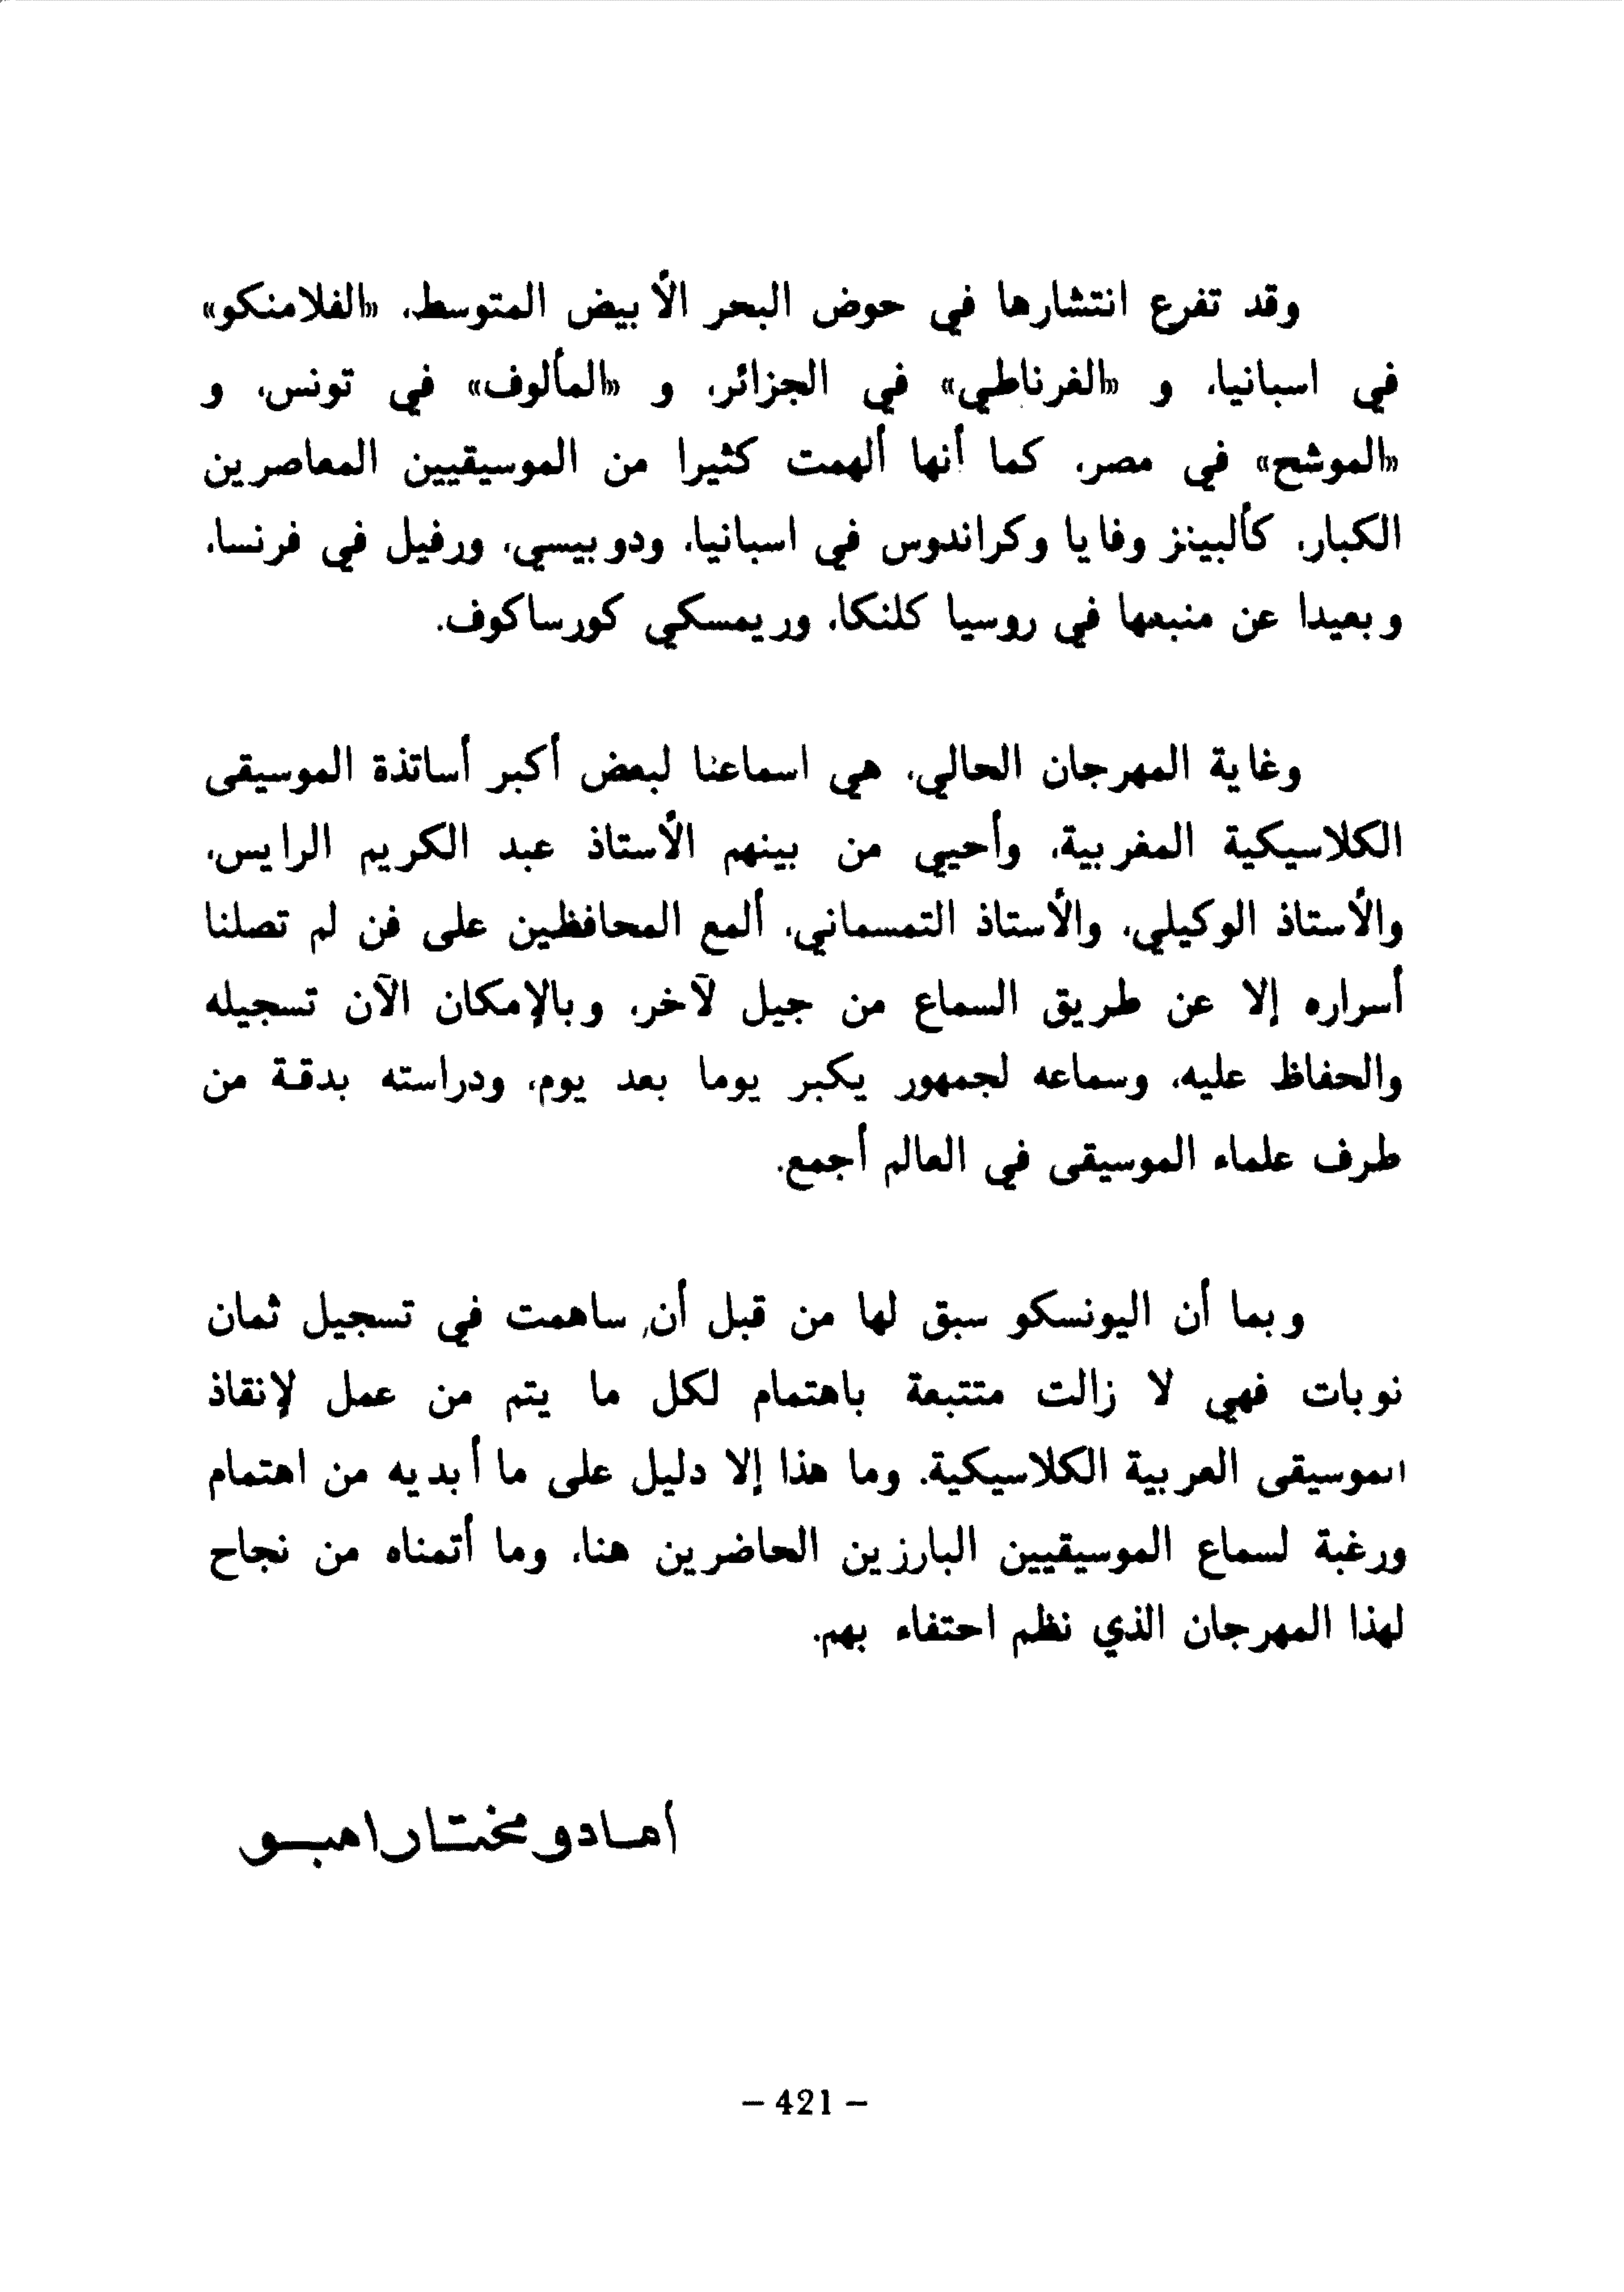 وقد تفرع انتشارها في حوض البحر الأبيض المتوسط، «الفلامنكو»
في اسبانيا، و «الغرناطي» في الجزائر، و «المألوف» في تونس، و
«الموشح» في مصر، كما أنها ألهمت كثيرا من الموسيقيين المعاصرين
الكبار، كألبينز وفايا وكراندوس في اسبانيا، ودوبيسي، ورفيل في فرنسا،
وبعيدا عن منبعها في روسيا كلنكا، وريمسكي كورساكوف.
وغاية المهرجان الحالي، هي اسماعنا لبعض أكبر أساتذة الموسيقى
الكلاسيكية المغربية، وأحيي من بينهم الأستاذ عبد الكريم الرايس،
والأستاذ الوكيلي، والأستاذ التمسماني، ألمع المحافظين على فن لم تصلنا
أسراره إلا عن طريق السماع من جيل لآخر، وبالإمكان الآن تسجيله
والحفاظ عليه، وسماعه لجمهور يكبر يوما بعد يوم، ودراسته بدقة من
طرف علماء الموسيقى في العالم أجمع.
وبما أن اليونسكو سبق لها من قبل أن, ساهمت في تسجيل ثمان
نوبات فهي لا زالت متتبعة باهتمام لكل ما يتم من عمل لإنقاذ
الموسيقى العربية الكلاسيكية. وما هذا إلا دليل على ما أبديه من اهتمام
ورغبة لسماع الموسيقيين البارزين الحاضرين هنا، وما أتمناه من نجاح
لهذا المهرجان الذي نظم احتفاء بهم.
أمادو مختار امبو
– 421 –